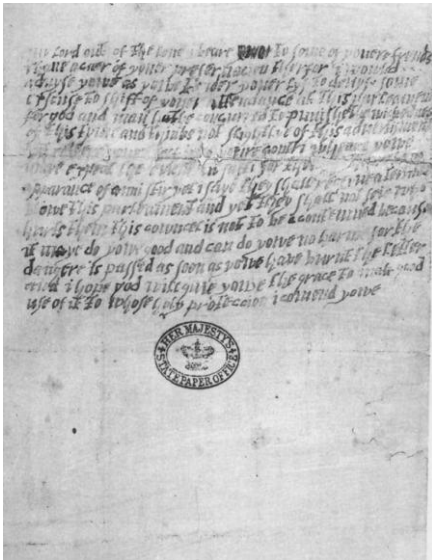 my lord out of the love i beare to some of youere frends
i have a caer of youer preservacion therfor i would
advyse yowe as yowe tender youer lyf to devys some
excuse to shift of youer attendance at this parleament
for god and man hathe concurred to punishe the wickednes
of this tyme and thinke not slightlye of this advertisment
but youre self into youre contri wheare yowe
maye expect the event in safti for
apparance of anni stir yet i saye they shall receyve a terrible
blowe this parleament and yet they shall not seie who
hurts them this cowncel is not to be contemned because
it maye do yowe good and can do yowe no harme for the
dangere is passed as soon as yowe have burnt the letter
and i hope god will give yowe the grace to mak good
use of it to whose holy proteccion i comend yowe
HER MAJESTY'S
STATE PAPER OFFICE